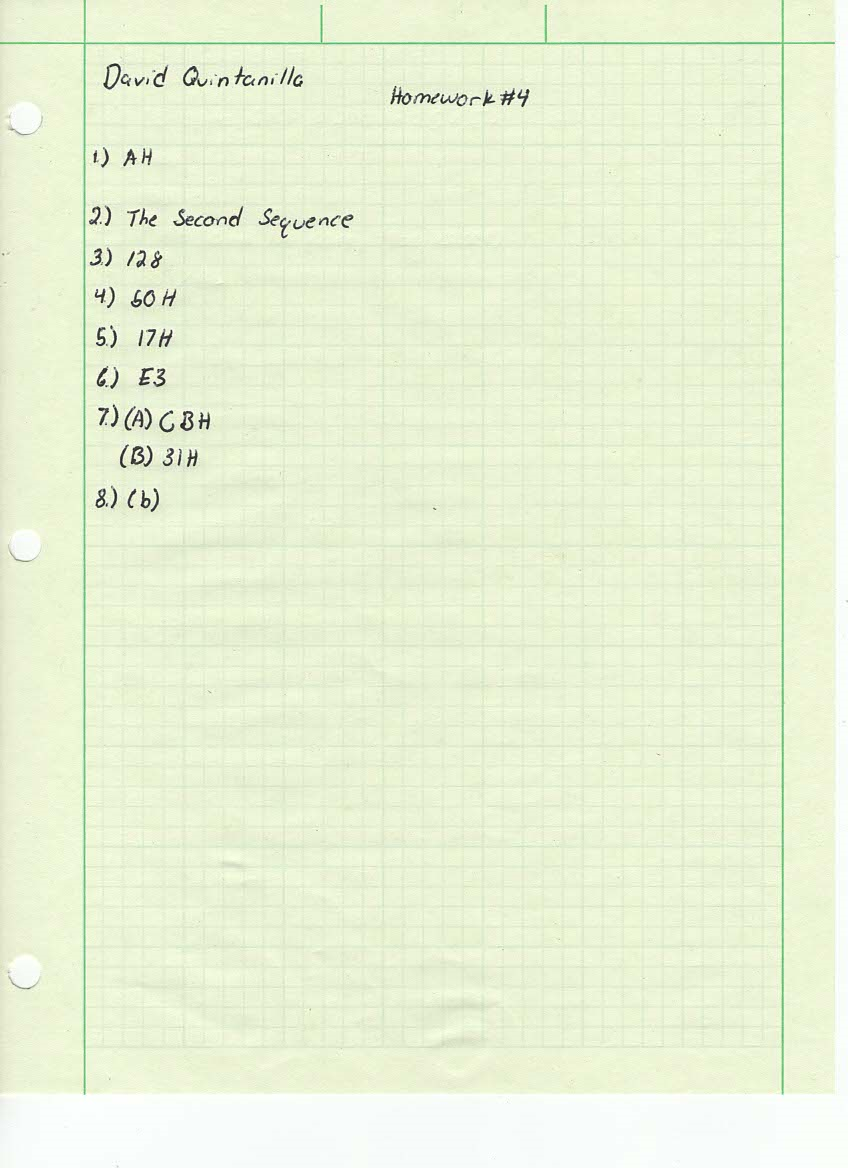 David Quintanilla
Homework #4
1.) AH
2.) The Second Sequence
3.) 128
4.) 50H
5.) 17H
6.) E3
7.) (A) CBH
(B) 31H
8.) (b)